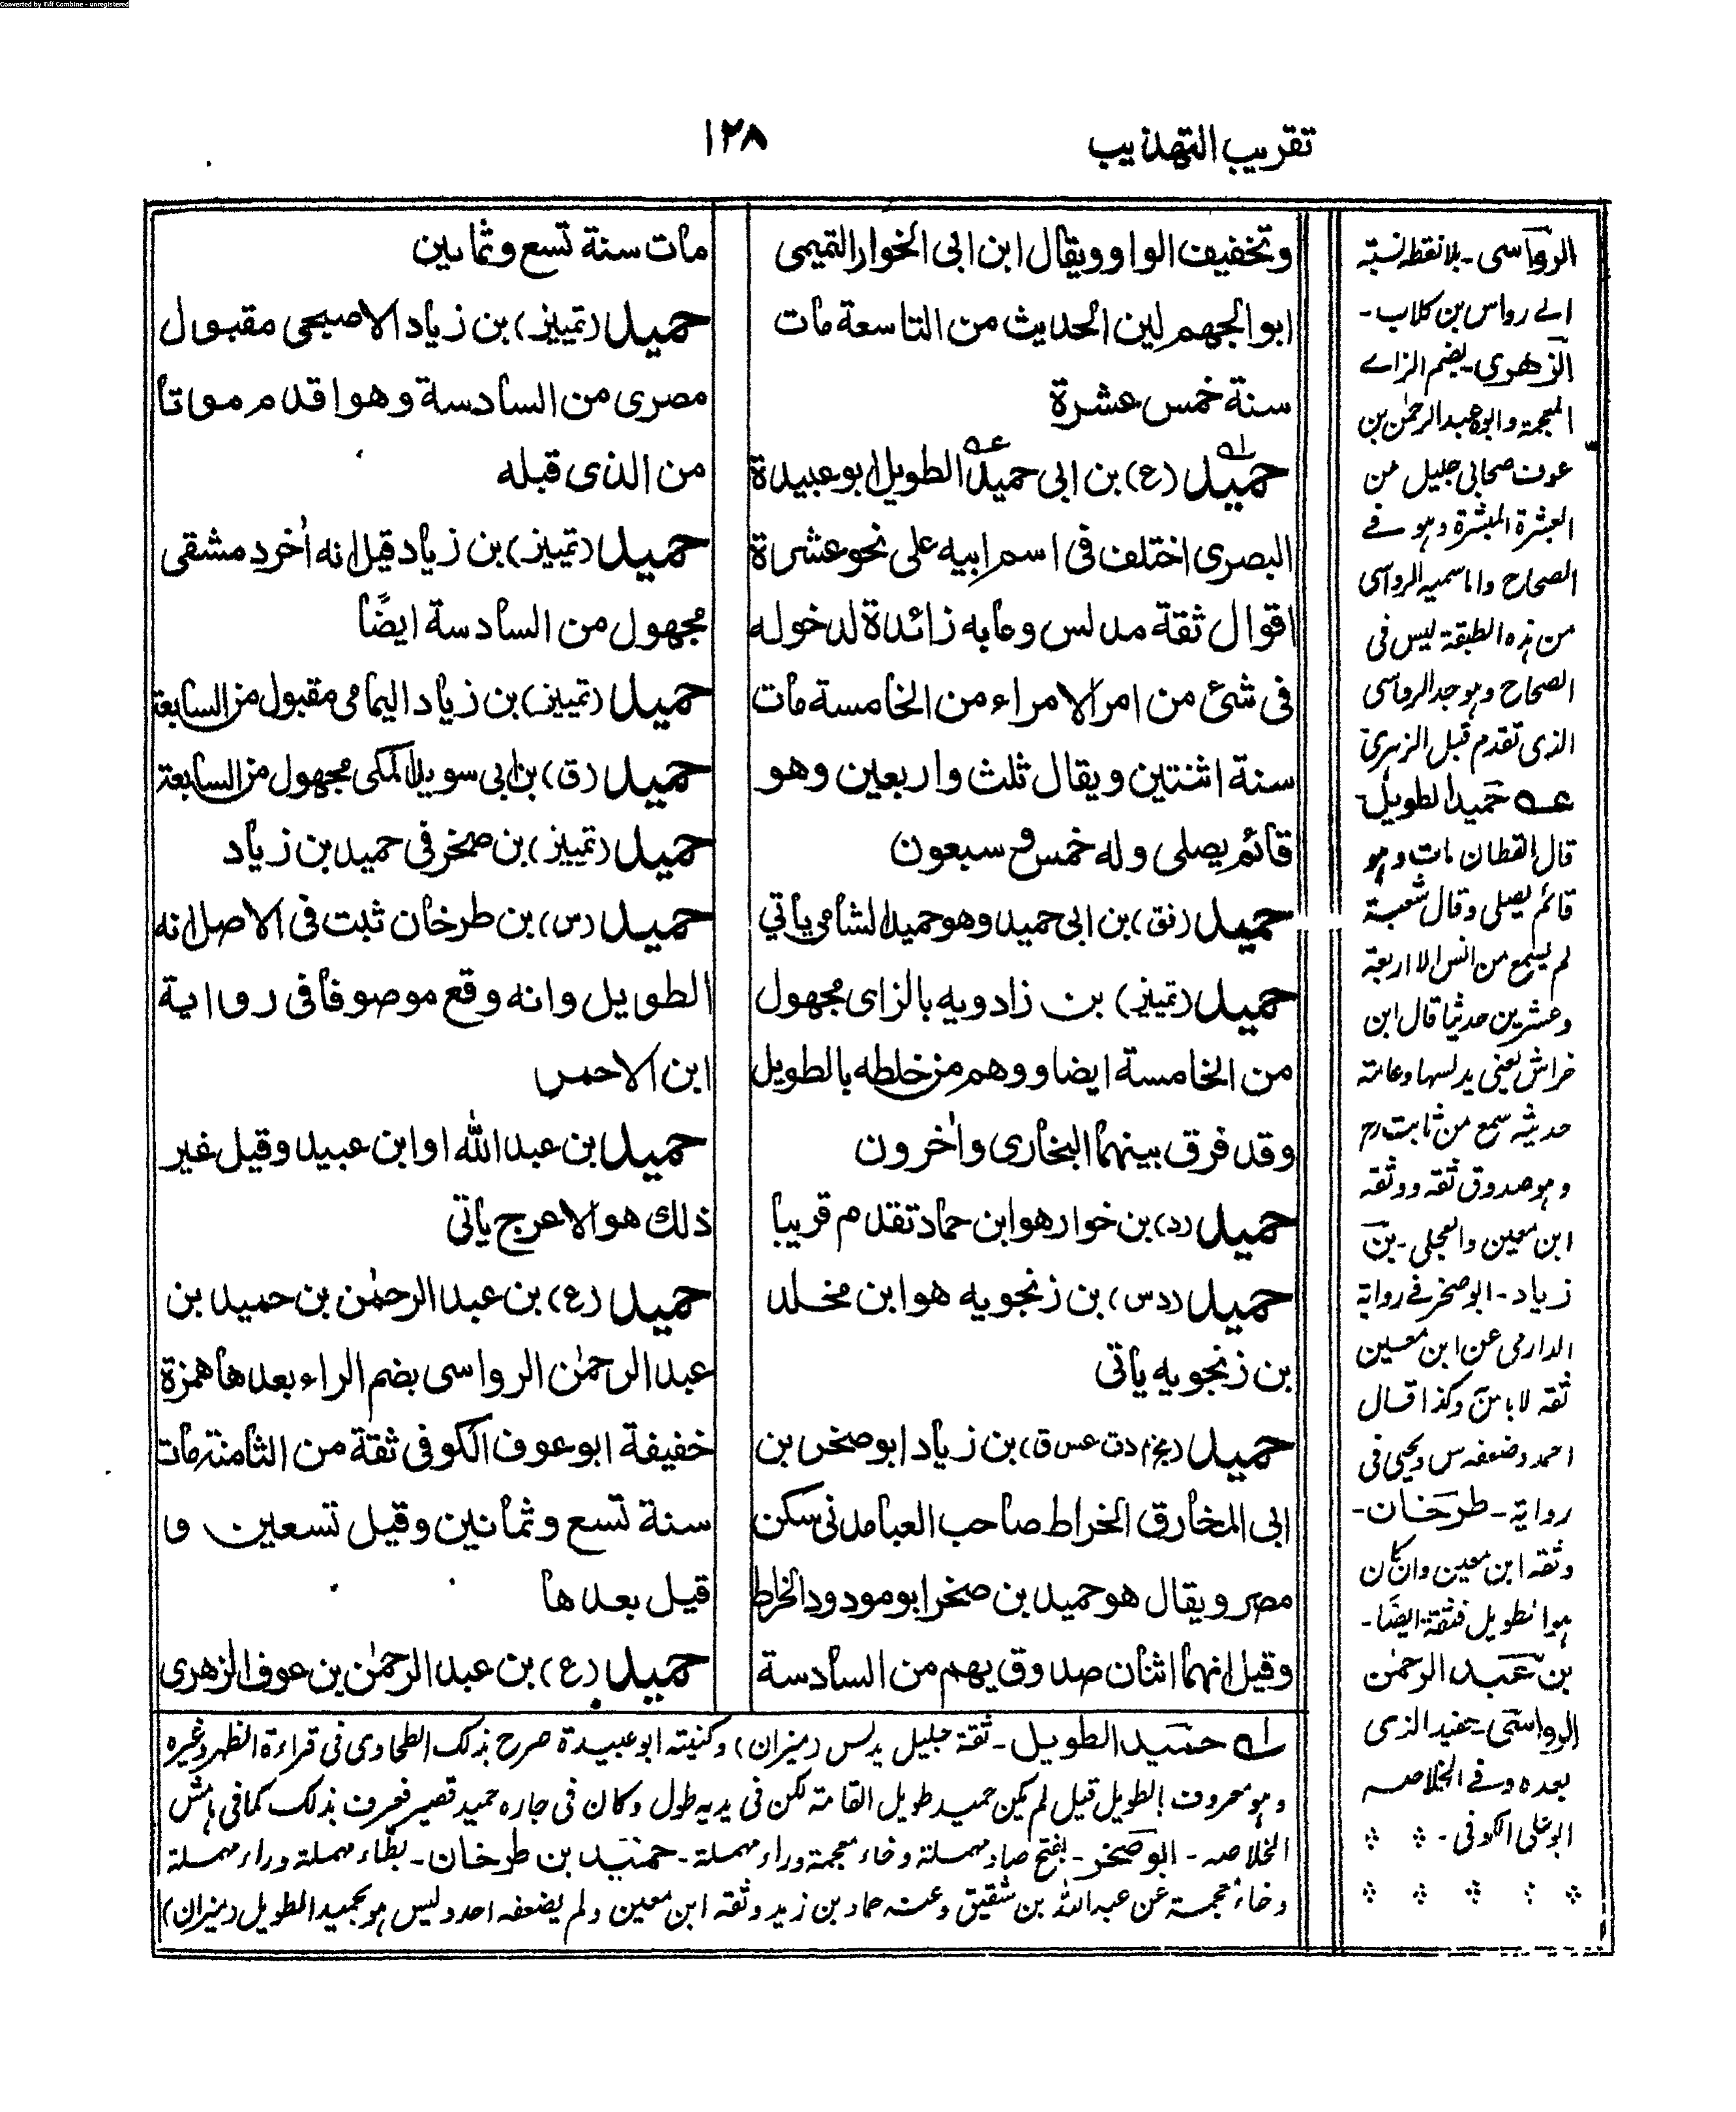 Converted by Tiff Combine - unregistered
تقريب التهذيب
١٢٨
وتخفيف الواو ويقال ابن ابى الخوار التميمى
ابو الجهم لين الحديث من التاسعة مات
سنة خمس عشرة
حميد (ع) بن ابى حميد الطويل ابو عبيدة
البصرى اختلف فى اسم ابيه على نحو عشرة
اقوال ثقة مدلس وعابه زائدة لدخوله
فى شئ من امر الامراء من الخامسة مات
سنة اثنتين ويقال ثلث واربعين وهو
قائم يصلى وله خمس وسبعون
حميد (نق) بن ابى حميد وهو حميد الشامى ياتي
حميد (تمييز) بن زادويه بالزاى مجهول
من الخامسة ايضا ووهم من خلطه بالطويل
وقد فرق بينهما البخارى واٰخرون
حميد (د) بن خوار هو ابن حماد تقدم قريبا
حميد (دس) بن زنجويه هو ابن مخلد
بن زنجويه ياتى
حميد (بخ م دت عس ق) بن زياد ابو صخر بن
ابى المخارق الخراط صاحب العبا مدنى سكن
مصر ويقال هو حميد بن صخر ابو مودود الخراط
وقيل انهما اثنان صدوق يهم من السادسة
مات سنة تسع وثمانين
حميد (تمييز) بن زياد الاصبحى مقبول
مصرى من السادسة وهو اقدم موتا
من الذى قبله
حميد (تمييز) بن زياد قيل انه اٰخر دمشقى
مجهول من السادسة ايضًا
حميد (تمييز) بن زياد اليمامى مقبول من السابعة
حميد (ق) بن ابى سويد المكى مجهول من السابعة
حميد (تمييز) بن صخر فى حميد بن زياد
حميد (س) بن طرخان ثبت فى الاصل انه
الطويل وانه وقع موصوفا فى رواية
ابن الاحمر
حميد بن عبد الله او ابن عبيد وقيل غير
ذلك هو الاعرج ياتى
حميد (ع) بن عبد الرحمٰن بن حميد بن
عبد الرحمٰن الرواسى بضم الراء بعدها همزة
خفيفة ابو عوف الكوفى ثقة من الثامنة مات
سنة تسع وثمانين وقيل تسعين و
قيل بعدها
حميد (ع) بن عبد الرحمٰن بن عوف الزهرى
الرواسى - بلا نقطه نسبة
الے رواس بن كلاب -
الزهري - بضم الزاے
المعجمة وابوه عبد الرحمٰن بن
عوف صحابي جليل من
العشرة المبشرة وهو فے
الصحاح واما سميه الرواسى
من هذه الطبقة ليس فى
الصحاح وهو جد الرواسى
الذى تقدم قبل الزهرى
عه حميد الطويل
قال القطان مات وهو
قائم يصلى وقال شعبة
لم يسمع من انس الا اربعة
وعشرين حديثا قال ابن
خراش يعنى يدلسها وعامة
حديثه سمع من ثابت رح
وهو صدوق ثقه ووثقه
ابن معين والعجلى - بن
زياد - ابو صخر فے رواية
الدارمى عن ابن معين
ثقه لا باس وكذا قال
احمد وضعفه س ويحيى فى
رواية - طرخان -
وثقه ابن معين وان كان
هو الطويل فثقة ايضًا -
بن عبد الرحمٰن
الرواسى - حفيد الذى
بعده وفے الخلاصه
ابو على الكوفى -
له حميد الطويل - ثقة جليل يدلس (ميزان) وكنيته ابو عبيدة صرح بذلك الطحاوى فى قراءة الظهر وغيره
وهو معروف بالطويل قيل لم يكن حميد طويل القامة لكن فى يديه طول وكان فى جاره حميد قصير فعرف بذلك كما فى هامش
الخلاصه - ابو صخر - بفتح صاد مهملة وخاء معجمة وراء مهملة - حميد بن طرخان - بطاء مهملة وراء مهملة
وخاء معجمة عن عبد الله بن شقيق وعنه حماد بن زيد وثقه ابن معين ولم يضعفه احد وليس هو بحميد الطويل (ميزان)